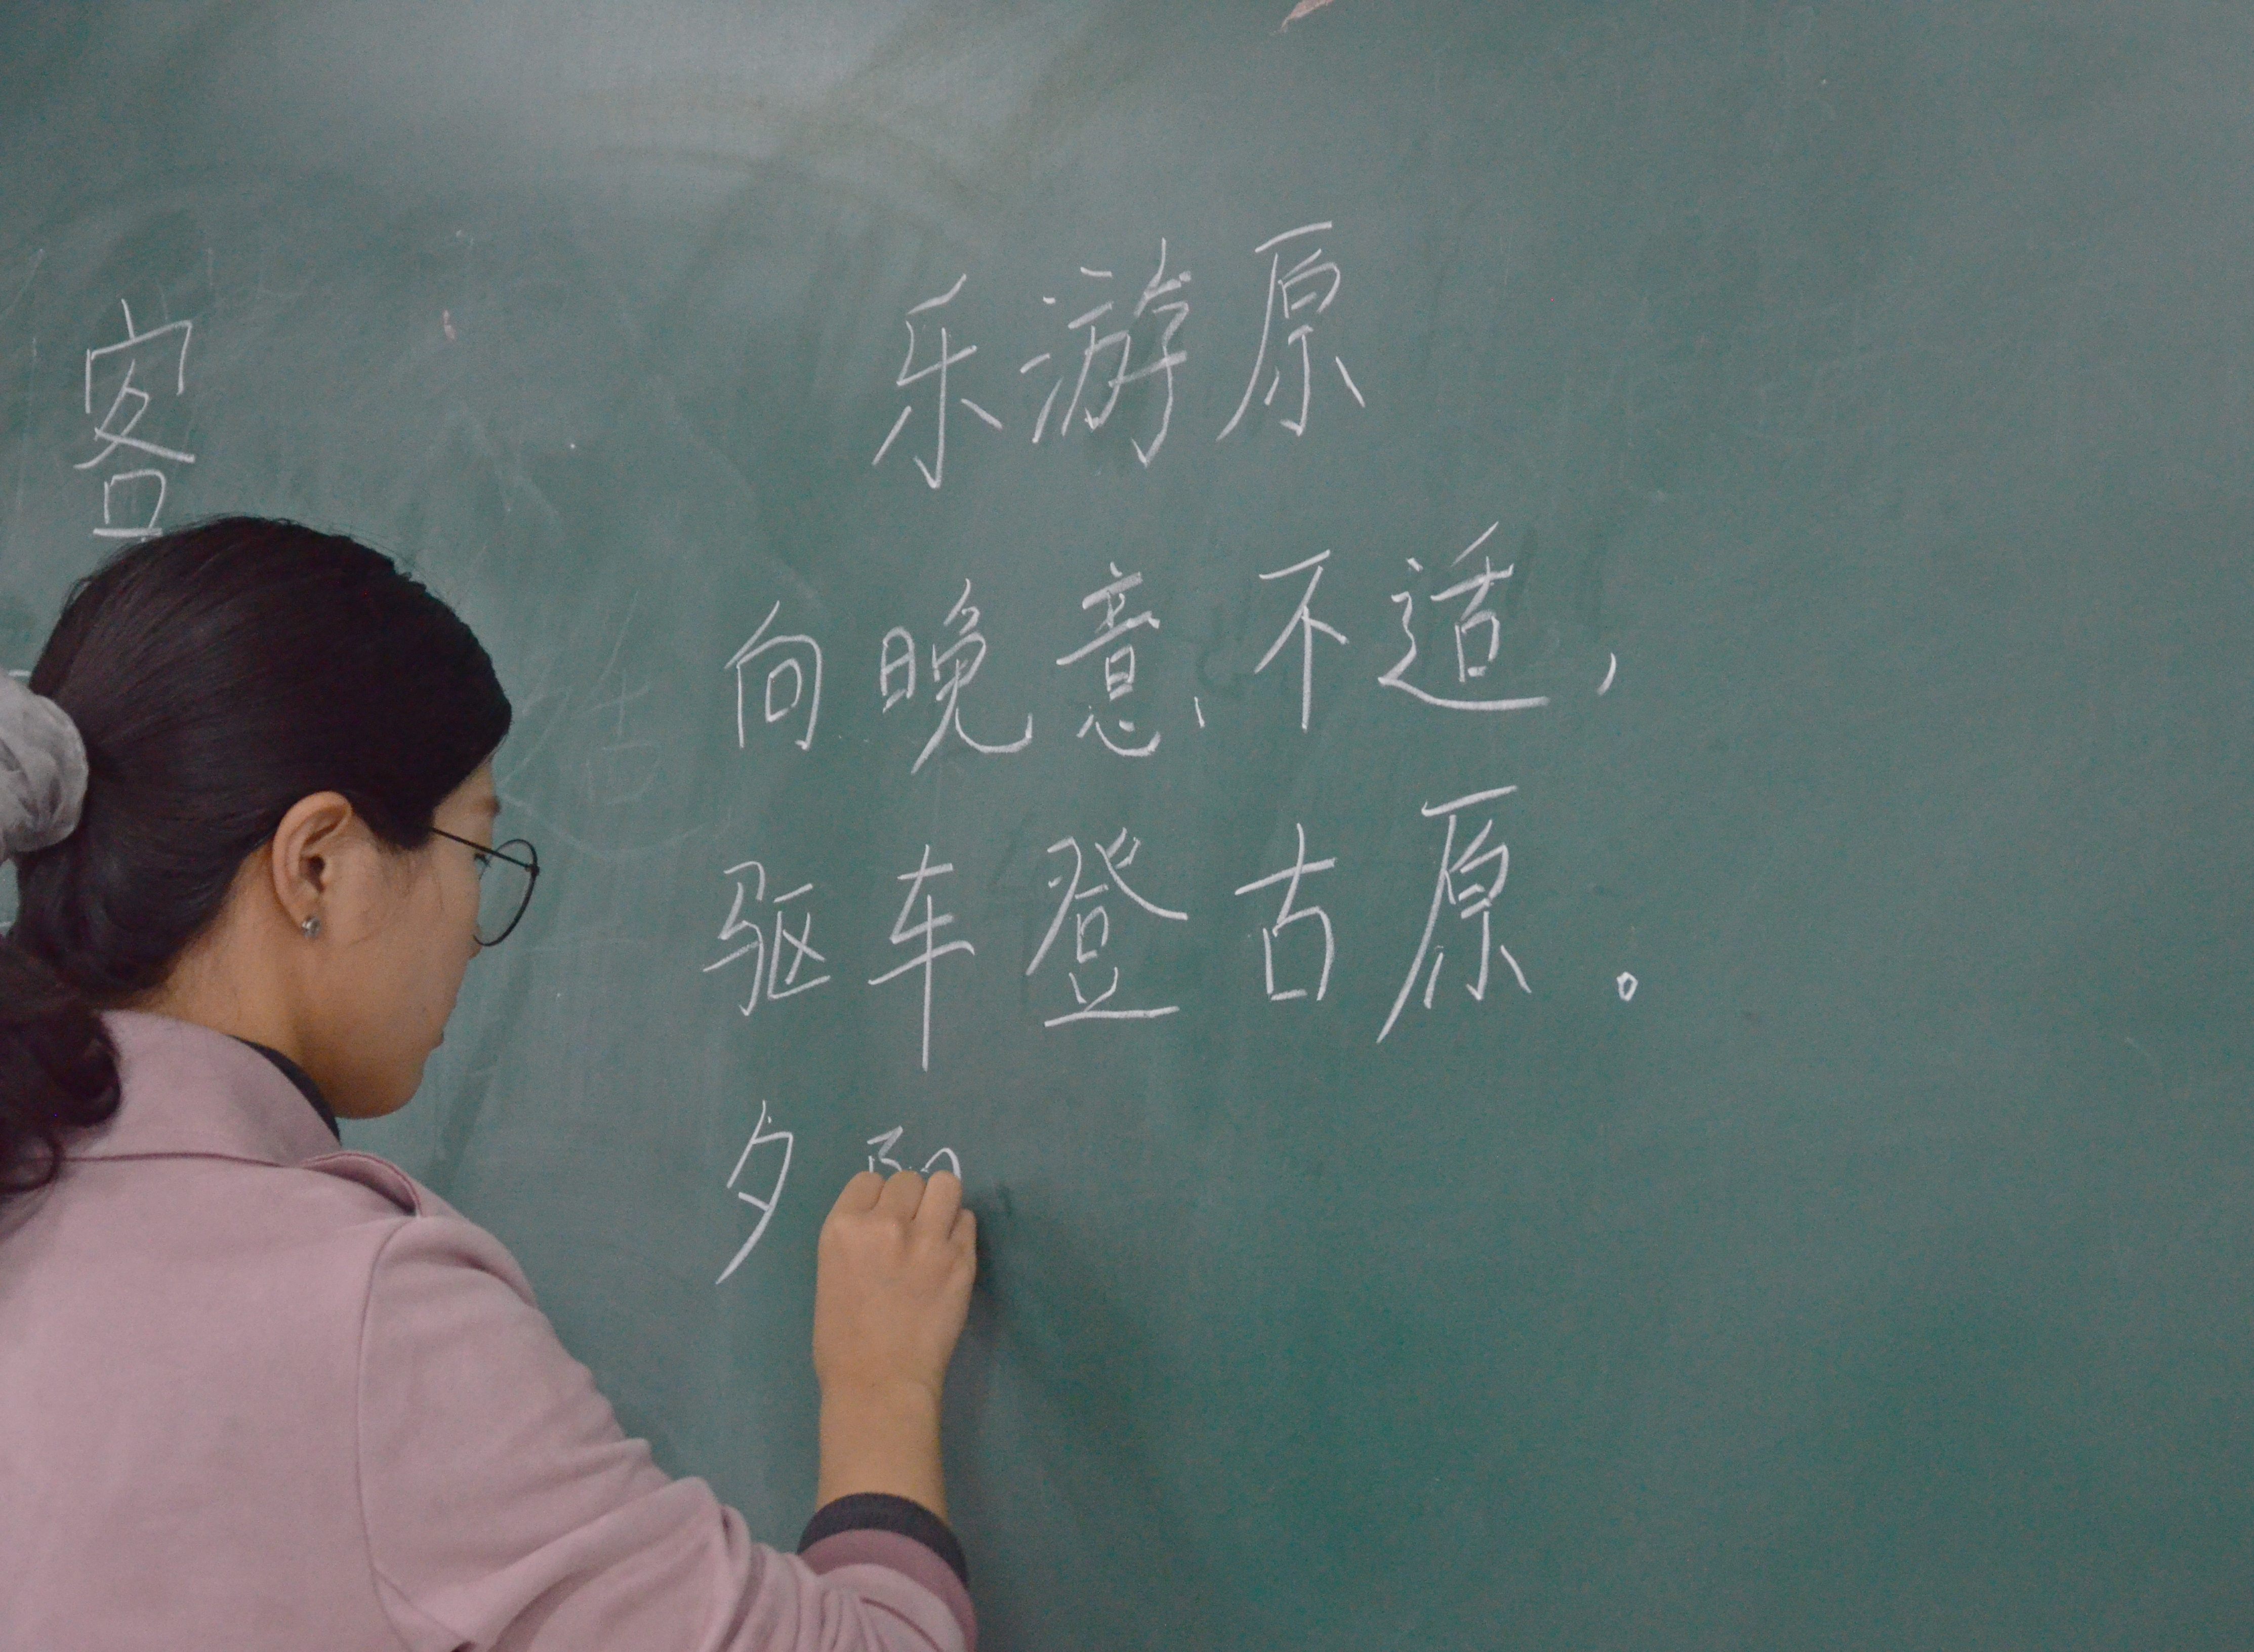 客
乐游原
向晚意不适，
驱车登古原。
夕